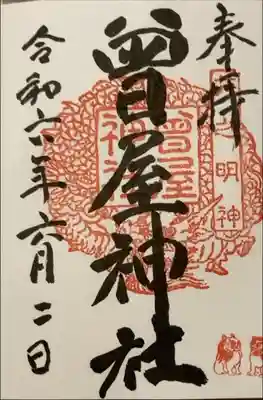 奉拝
明神
曽屋神社
曽屋
神社
令和六年六月二日